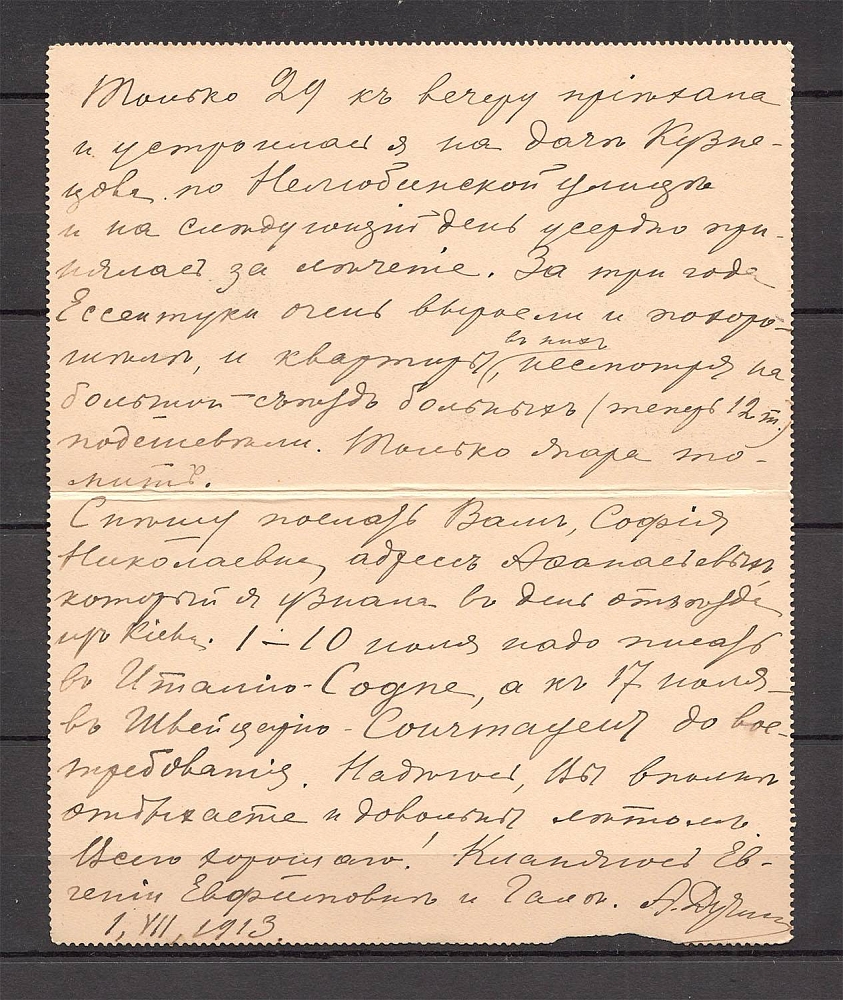 Только 29 къ вечеру пріѣхала
и устроилась я на дачѣ Кузне-
цова по Нелюбинской улицѣ
и на слѣдующій день усердно при-
нялась за лѣченіе. За три года
Ессентуки очень выросли и похоро-
шѣли, и квартиры, въ нихъ несмотря на
большой съѣздъ больныхъ (теперь 12 т.)
подешевѣли. Только жара то-
митъ.
Спѣшу послать Вамъ, Софія
Николаевна, адресъ Аѳанасьевыхъ
который я узнала въ день отъѣзда
изъ Кіева. 1–10 іюля надо писать
въ Италію - Cogne, а къ 17 іюля -
въ Швейцарію - Courmayeur до вос-
требованія. Надѣюсь, Вы вполнѣ
отдыхаете и довольны лѣтомъ.
Всего хорошаго! Кланяюсь Ев-
геніи Евфимовнѣ и Галѣ. А.
1, VII, 1913.